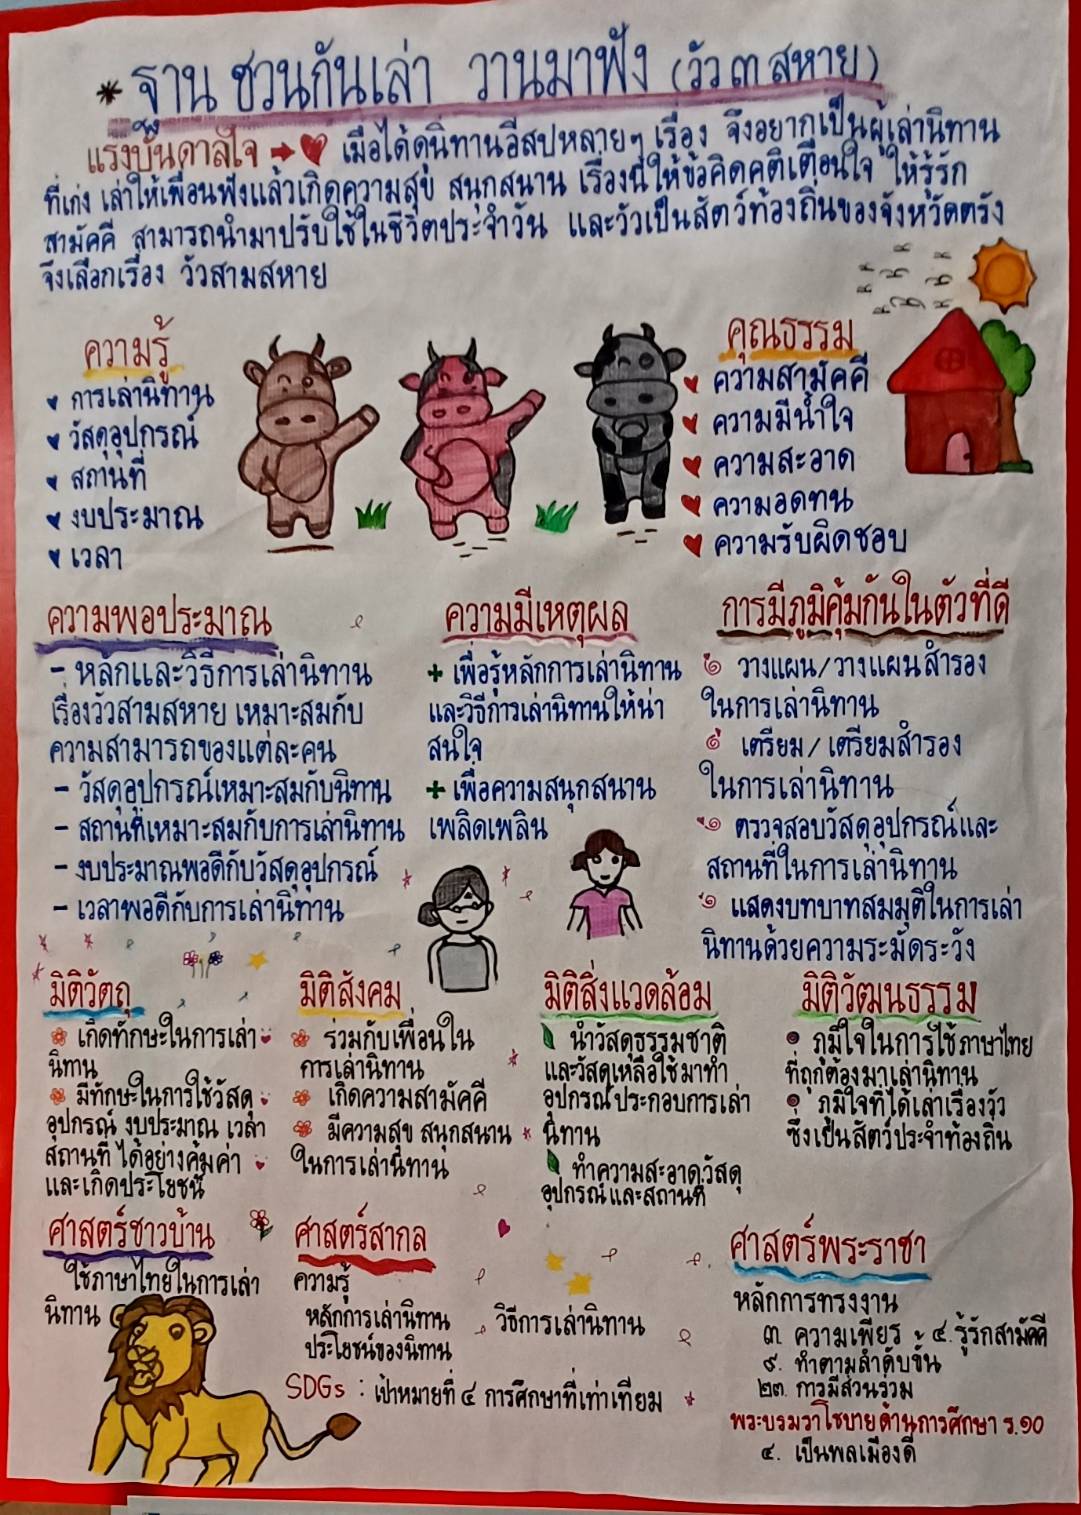 * ฐาน ชวนกันเล่า วานมาฟัง (วัว ๓ สหาย)
แรงบันดาลใจ → เมื่อได้ดูนิทานอีสปหลายๆ เรื่อง จึงอยากเป็นผู้เล่านิทาน
ที่เก่ง เล่าให้เพื่อนฟังแล้วเกิดความสุข สนุกสนาน เรื่องนี้ให้ข้อคิดคติเตือนใจ ให้รู้รัก
สามัคคี สามารถนำมาปรับใช้ในชีวิตประจำวัน และวัวเป็นสัตว์ท้องถิ่นของจังหวัดตรัง
จึงเลือกเรื่อง วัวสามสหาย
ความรู้
การเล่านิทาน
วัสดุอุปกรณ์
สถานที่
งบประมาณ
เวลา
คุณธรรม
ความสามัคคี
ความมีน้ำใจ
ความสะอาด
ความอดทน
ความรับผิดชอบ
ความพอประมาณ
- หลักและวิธีการเล่านิทาน
เรื่องวัวสามสหาย เหมาะสมกับ
ความสามารถของแต่ละคน
- วัสดุอุปกรณ์เหมาะสมกับนิทาน
- สถานที่เหมาะสมกับการเล่านิทาน
- งบประมาณพอดีกับวัสดุอุปกรณ์
- เวลาพอดีกับการเล่านิทาน
ความมีเหตุผล
+ เพื่อรู้หลักการเล่านิทาน
และวิธีการเล่านิทานให้น่า
สนใจ
+ เพื่อความสนุกสนาน
เพลิดเพลิน
การมีภูมิคุ้มกันในตัวที่ดี
วางแผน/วางแผนสำรอง
ในการเล่านิทาน
เตรียม/เตรียมสำรอง
ในการเล่านิทาน
ตรวจสอบวัสดุอุปกรณ์และ
สถานที่ในการเล่านิทาน
แสดงบทบาทสมมุติในการเล่า
นิทานด้วยความระมัดระวัง
มิติวัตถุ
เกิดทักษะในการเล่า
นิทาน
มีทักษะในการใช้วัสดุ
อุปกรณ์ งบประมาณ เวลา
สถานที่ ได้อย่างคุ้มค่า
และเกิดประโยชน์
มิติสังคม
ร่วมกับเพื่อนใน
การเล่านิทาน
เกิดความสามัคคี
มีความสุข สนุกสนาน
ในการเล่านิทาน
มิติสิ่งแวดล้อม
นำวัสดุธรรมชาติ
และวัสดุเหลือใช้มาทำ
อุปกรณ์ประกอบการเล่า
นิทาน
ทำความสะอาดวัสดุ
อุปกรณ์และสถานที่
มิติวัฒนธรรม
ภูมิใจในการใช้ภาษาไทย
ที่ถูกต้องมาเล่านิทาน
ภูมิใจที่ได้เล่าเรื่องวัว
ซึ่งเป็นสัตว์ประจำท้องถิ่น
ศาสตร์ชาวบ้าน
ใช้ภาษาไทยในการเล่า
นิทาน
ศาสตร์สากล
ความรู้
หลักการเล่านิทาน วิธีการเล่านิทาน
ประโยชน์ของนิทาน
SDGs : เป้าหมายที่ ๔ การศึกษาที่เท่าเทียม
ศาสตร์พระราชา
หลักการทรงงาน
๓. ความเพียร ๔. รู้รักสามัคคี
๙. ทำตามลำดับขั้น
๒๓. การมีส่วนร่วม
พระบรมราโชบายด้านการศึกษา ร.๑๐
๔. เป็นพลเมืองดี